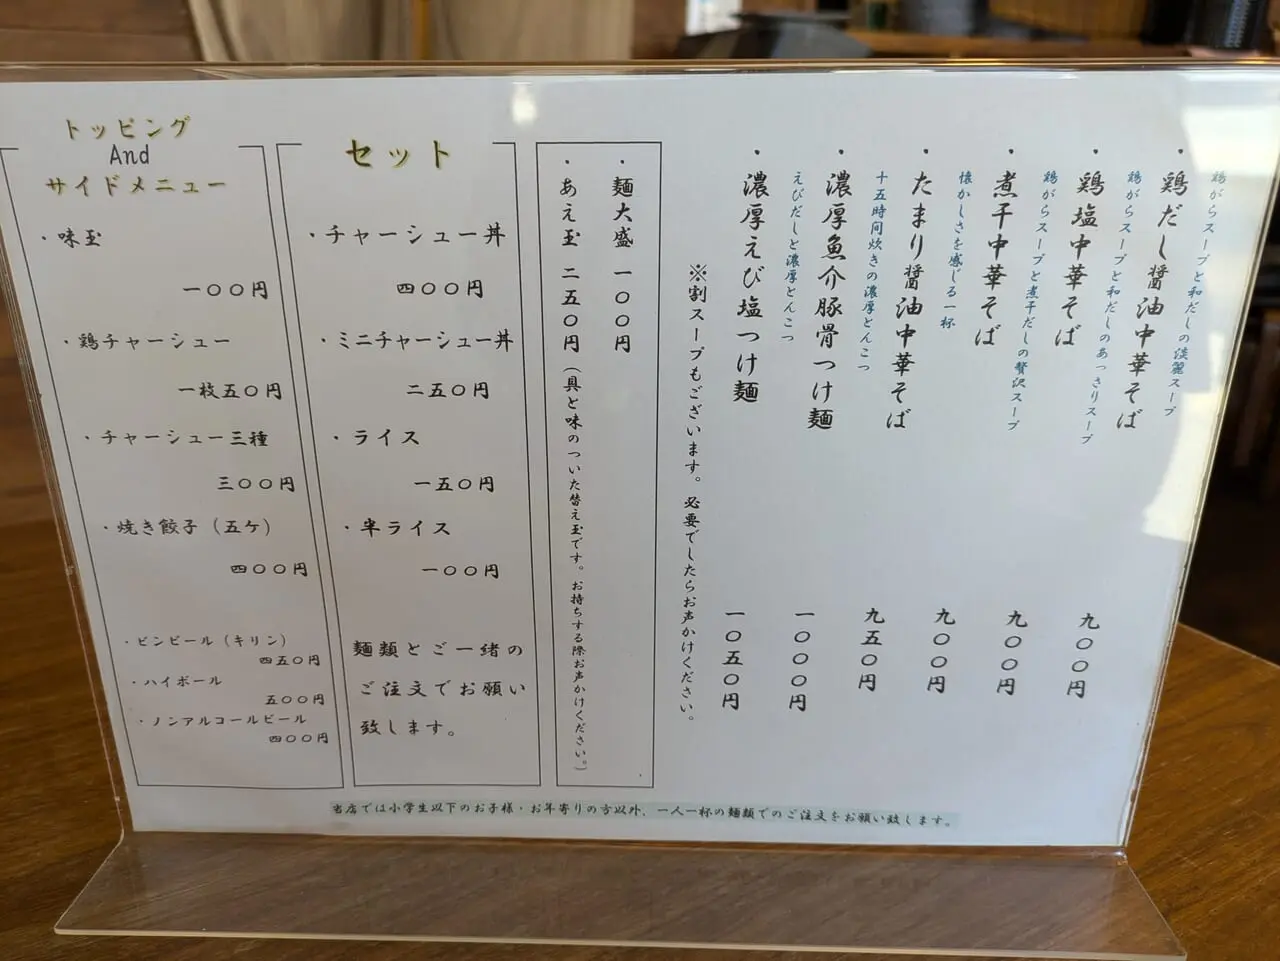 鶏がらスープと和だしの淡麗スープ
・鶏だし醤油中華そば 九〇〇円
鶏がらスープと和だしのあっさりスープ
・鶏塩中華そば 九〇〇円
鶏がらスープと煮干だしの贅沢スープ
・煮干中華そば 九〇〇円
懐かしさを感じる一杯
・たまり醤油中華そば 九五〇円
十五時間炊きの濃厚とんこつ
・濃厚魚介豚骨つけ麺 一〇〇〇円
えびだしと濃厚とんこつ
・濃厚えび塩つけ麺 一〇五〇円
※割スープもございます。必要でしたらお声かけください。
・麺大盛 一〇〇円
・あえ玉 二五〇円(具と味のついた替え玉です。お持ちする際お声かけください。)
セット
・チャーシュー丼
四〇〇円
・ミニチャーシュー丼
二五〇円
・ライス
一五〇円
・半ライス
一〇〇円
麺類とご一緒の
ご注文でお願い
致します。
トッピング
And
サイドメニュー
・味玉
一〇〇円
・鶏チャーシュー
一枚五〇円
・チャーシュー三種
三〇〇円
・焼き餃子(五ケ)
四〇〇円
・ビンビール(キリン)
四五〇円
・ハイボール
五〇〇円
・ノンアルコールビール
四〇〇円
当店では小学生以下のお子様・お年寄りの方以外、一人一杯の麺類でのご注文をお願い致します。